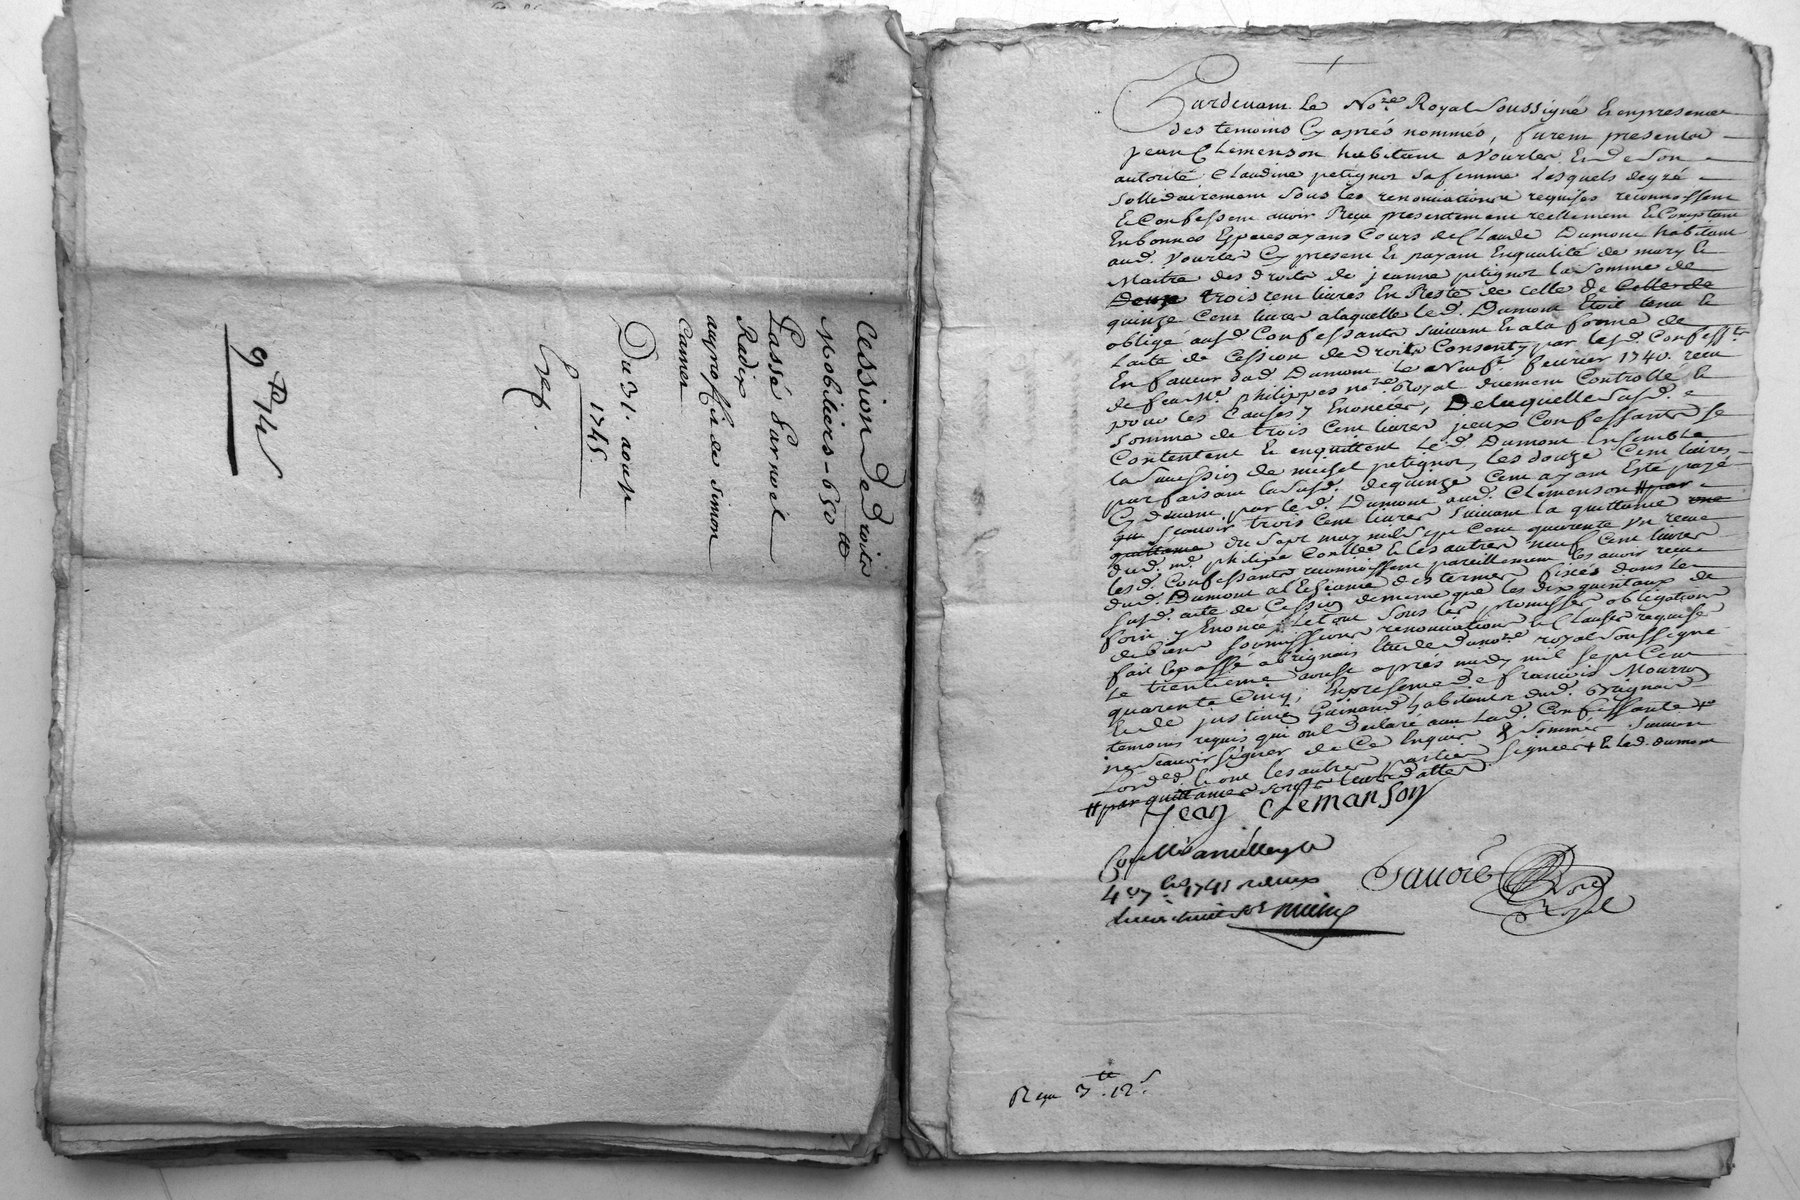 Cession De Droits
Mobiliers - 650 tt
Passé Par
Radix
au proffit de Simon
Cramer
Du 31. aoust
1745.
Exp.
Pardevant Le No.re Royal Soussigné Et en presence
des temoins Cy aprés nommés, furent presents
jean Clemenson habitant a Vourles Et De Son
autorité Claudine petignot sa femme Lesquels de gré
Sollidairement Sous les renonciations requises reconnoissent
Et Confessent avoir Reçu presentement réellement Et Comptant
En bonnes Especes ayans Cours de Claude Dumont habitant
aud. Vourles Cy present Et payant En qualité de mary Et
Maitre des droits de jeanne petignot la Somme de
Deux trois cent livres En Reste de celle de Celle de
quinze Cent livres a laquelle le d. Dumont Etoit tenu Et
obligé ausd. Confessants suivant Et a la forme de
Lacte de Cession de Droits Consenty par lesd. Confess.ts
En faveur dud. Dumont le Neuf.e fevrier 1740. recu
de feu M.e Philippes no.re Royal duement Controllé Et
pour les Causes y Enoncées, De laquelle Susd.
Somme de trois Cent livres yceux Confessants Se
Contentent Et en quittent Le d. Dumont Ensemble
la Succession de petignot, les douze Cent livres
parfaisant la Susd. de quinze Cent ayant Esté payé
Cy devant par le d. Dumont aud. Clemenson # par
Scavoir trois Cent livres Suivant la quittance une
quittance du Sept may mil Sept Cent quarente Un recue
dud. m.e philipe Con.llee Et les autres neuf Cent livres
les d. Confessants reconnoissent pareillement les avoir recu
dud. Dumont a l'Echeance des termes fixés dans le
Susd. acte de Cession de meme que les dix quintaux de
foin y Enoncé, Le tout Sous les promesses obligation
de biens Soumissions renonciations Et Clauses requises
fait Et passé a brignais Etude du no.re royal Soussigné
Le trentieme aoust aprés midy mil Sept Cent
quarente Cinq, En presence de francois
Et de habitants dud. brignais
temoins requis qui ont declaré avec la d. Confessante
ne Scavoir signer de Ce Enquis & Sommés Suivant
Lord.ce Et ont les autres parties Signées & Et le d. dumont
# par quittances Sous leurs dattes
jean Clemanson
4 7bre 1745
Savoié Nore
Royal
Reçu 3 tt. 12 s.